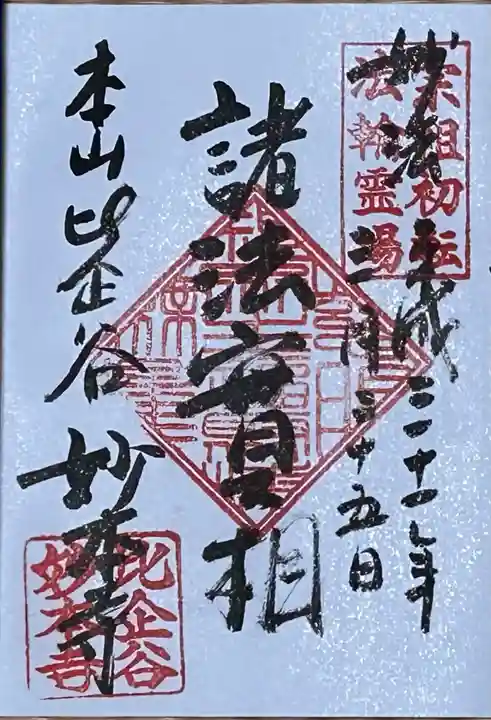 宗祖初転
法輪霊場
妙法
平成三十一年
三月二十五日
諸法實相
本山比企谷妙本寺
比企谷
妙本寺